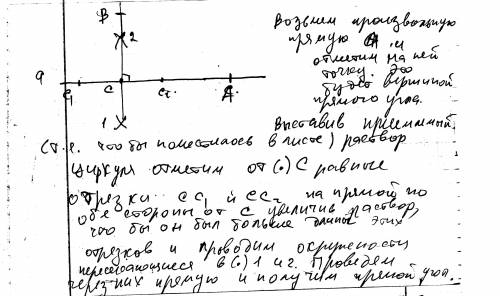 B
2
a
C₁ C C₂ A
1
Возьмем произвольную
прямую а и
отметим на ней
точку. Это
будет вершиной
прямого угла.
Выставив приемлемый
(т.е. что бы поместилось в листе) раствор
циркуля отметим от (•) C равные
отрезки CC₁ и CC₂ на прямой по
обе стороны от C увеличив раствор,
что бы он был больше длины этих
отрезков и проводим окружности
пересекающиеся в (•) 1 и 2. Проведем
через них прямую и получим прямой угол.